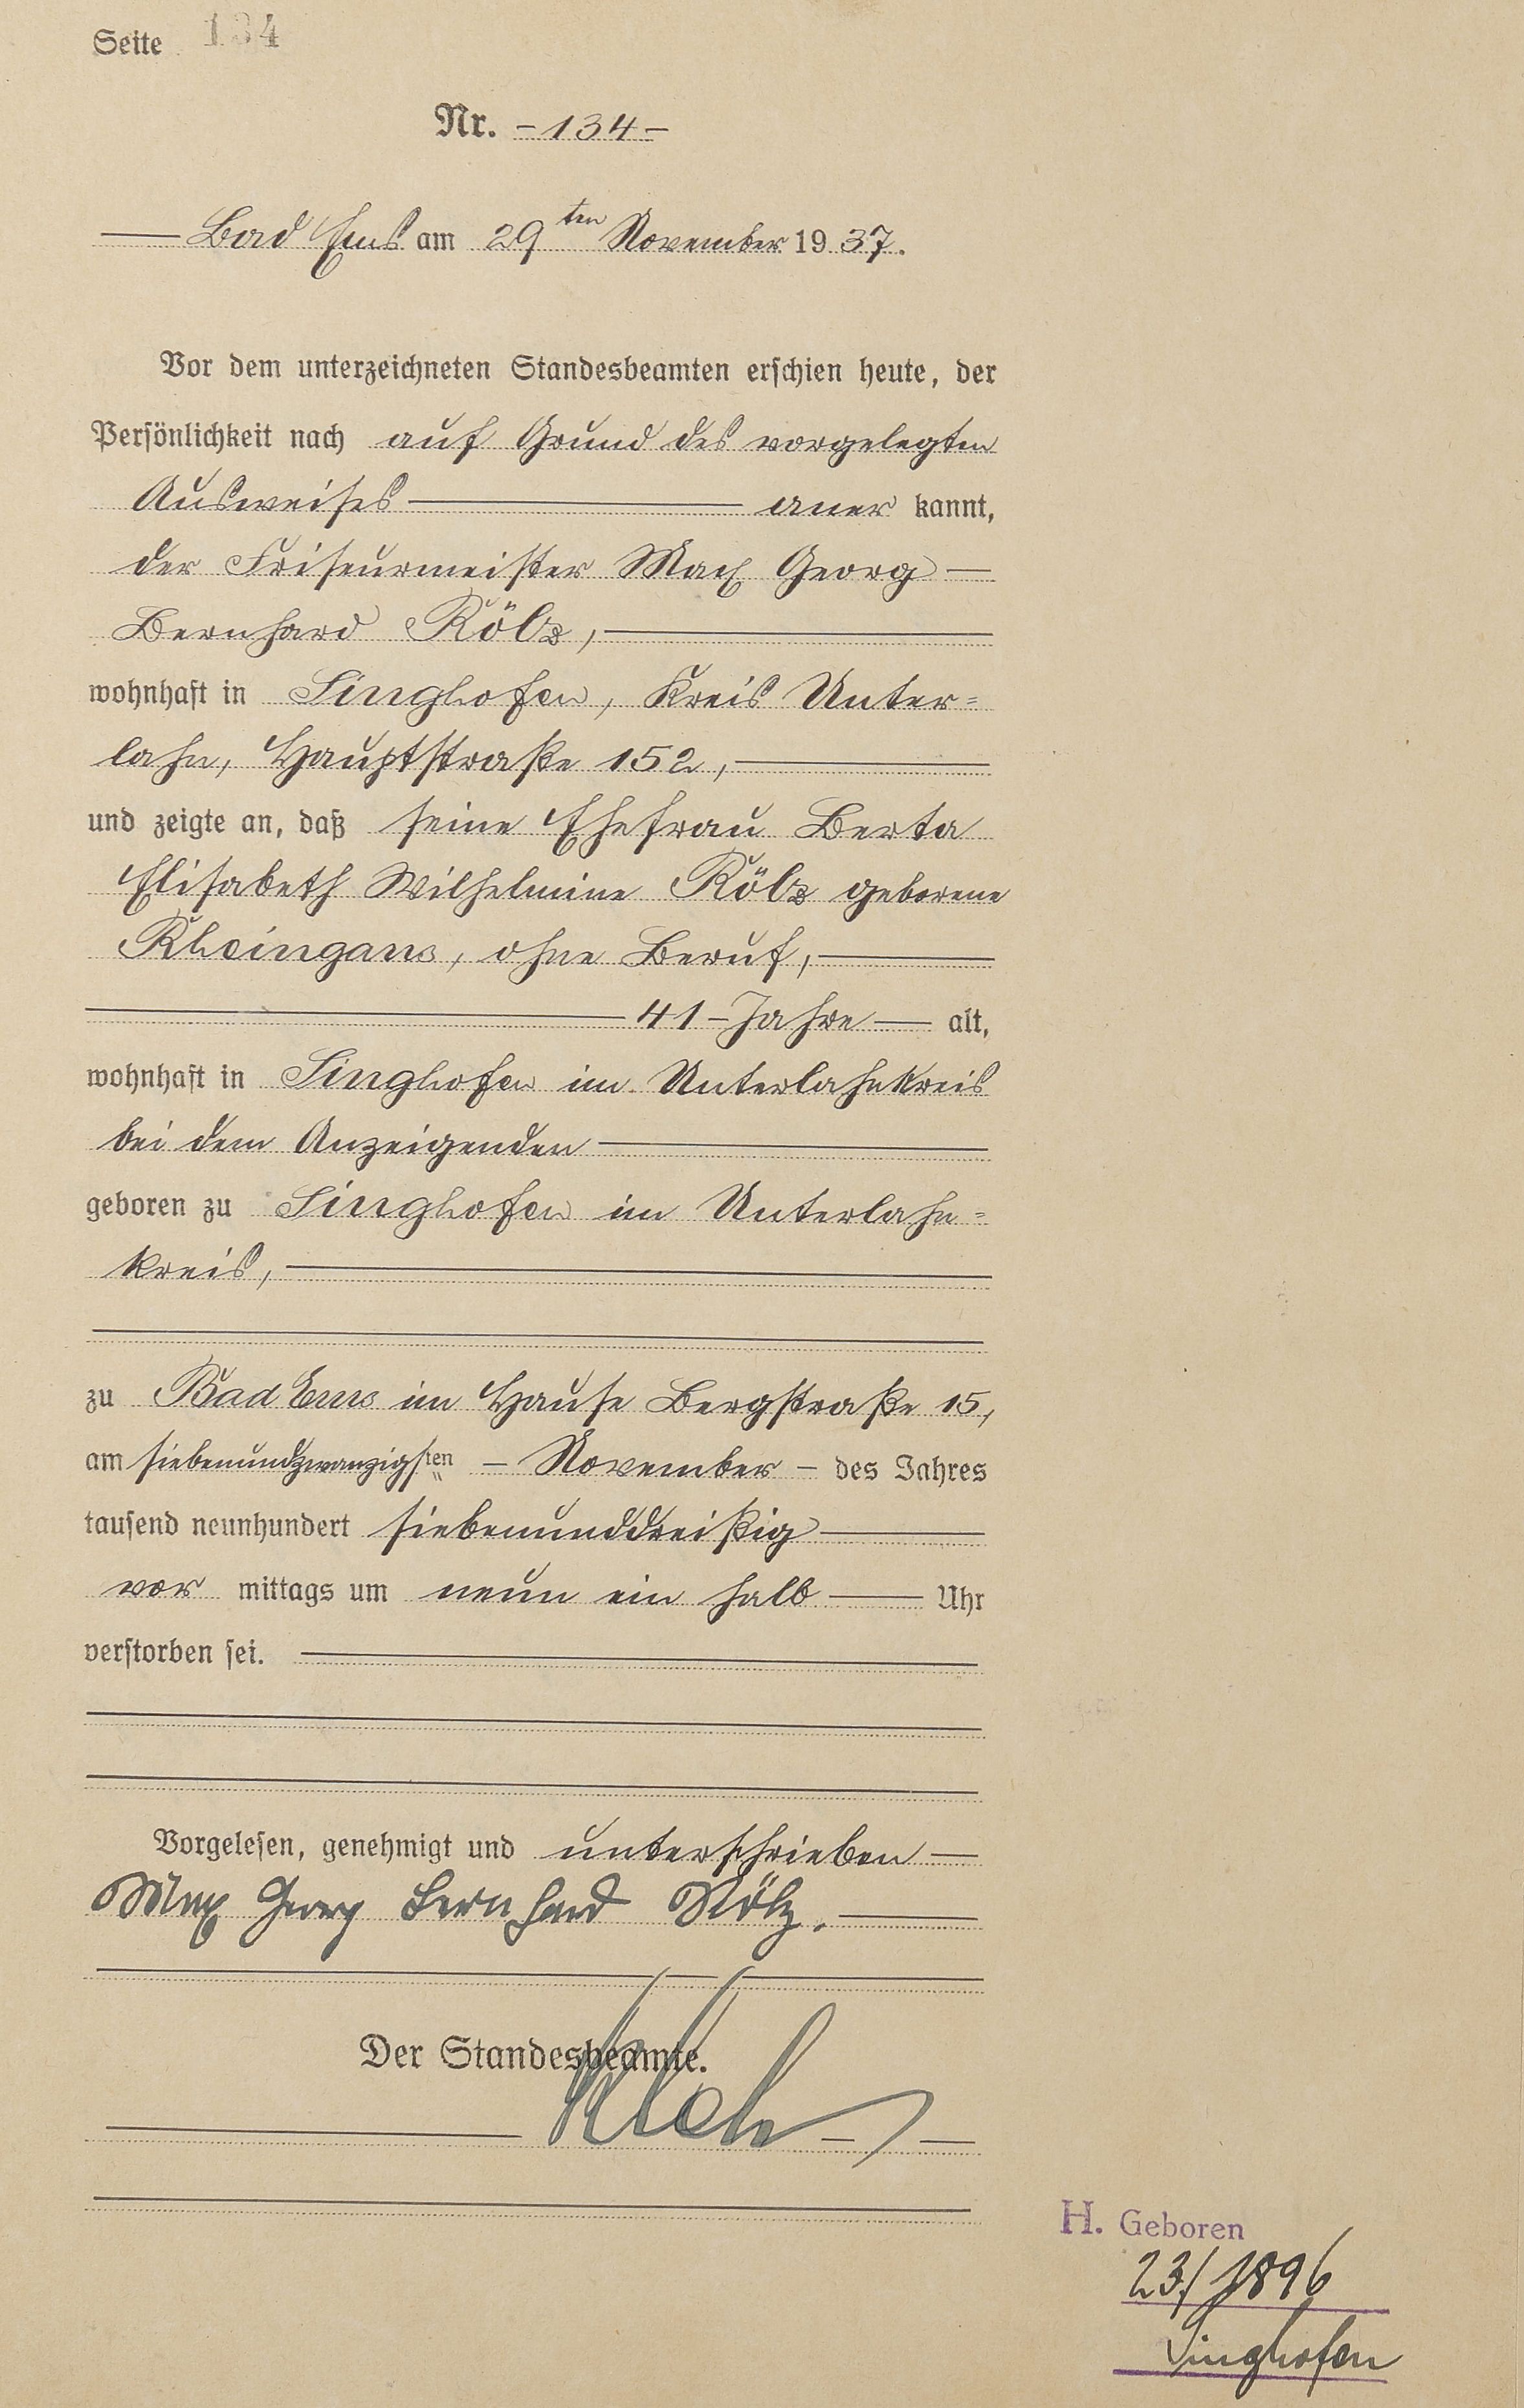 Seite 134
Nr. - 134 -
Bad Ems am 29ten November 1937.
Vor dem unterzeichneten Standesbeamten erschien heute, der
Persönlichkeit nach auf Grund des vorgelegten
Ausweises aner kannt,
der Friseurmeister Max Georg
Bernhard Rölz,
wohnhaft in Singhofen, Kreis Unter=
lahn, Hauptstraße 152,
und zeigte an, daß seine Ehefrau Berta
Elisabeth Wilhelmine Rölz geborene
Rheingans, ohne Beruf,
41 - Jahre alt,
wohnhaft in Singhofen im Unterlahnkreis
bei dem Anzeigenden
geboren zu Singhofen im Unterlahn=
kreis,
zu Bad Ems im Hause Bergstraße 15,
am siebenundzwanzigsten - November - des Jahres
tausend neunhundert siebenunddreißig
vor mittags um neun ein halb Uhr
verstorben sei.
Vorgelesen, genehmigt und unterschrieben
Max Georg Bernhard Rölz.
Der Standesbeamte.
H. Geboren
23/1896
Singhofen